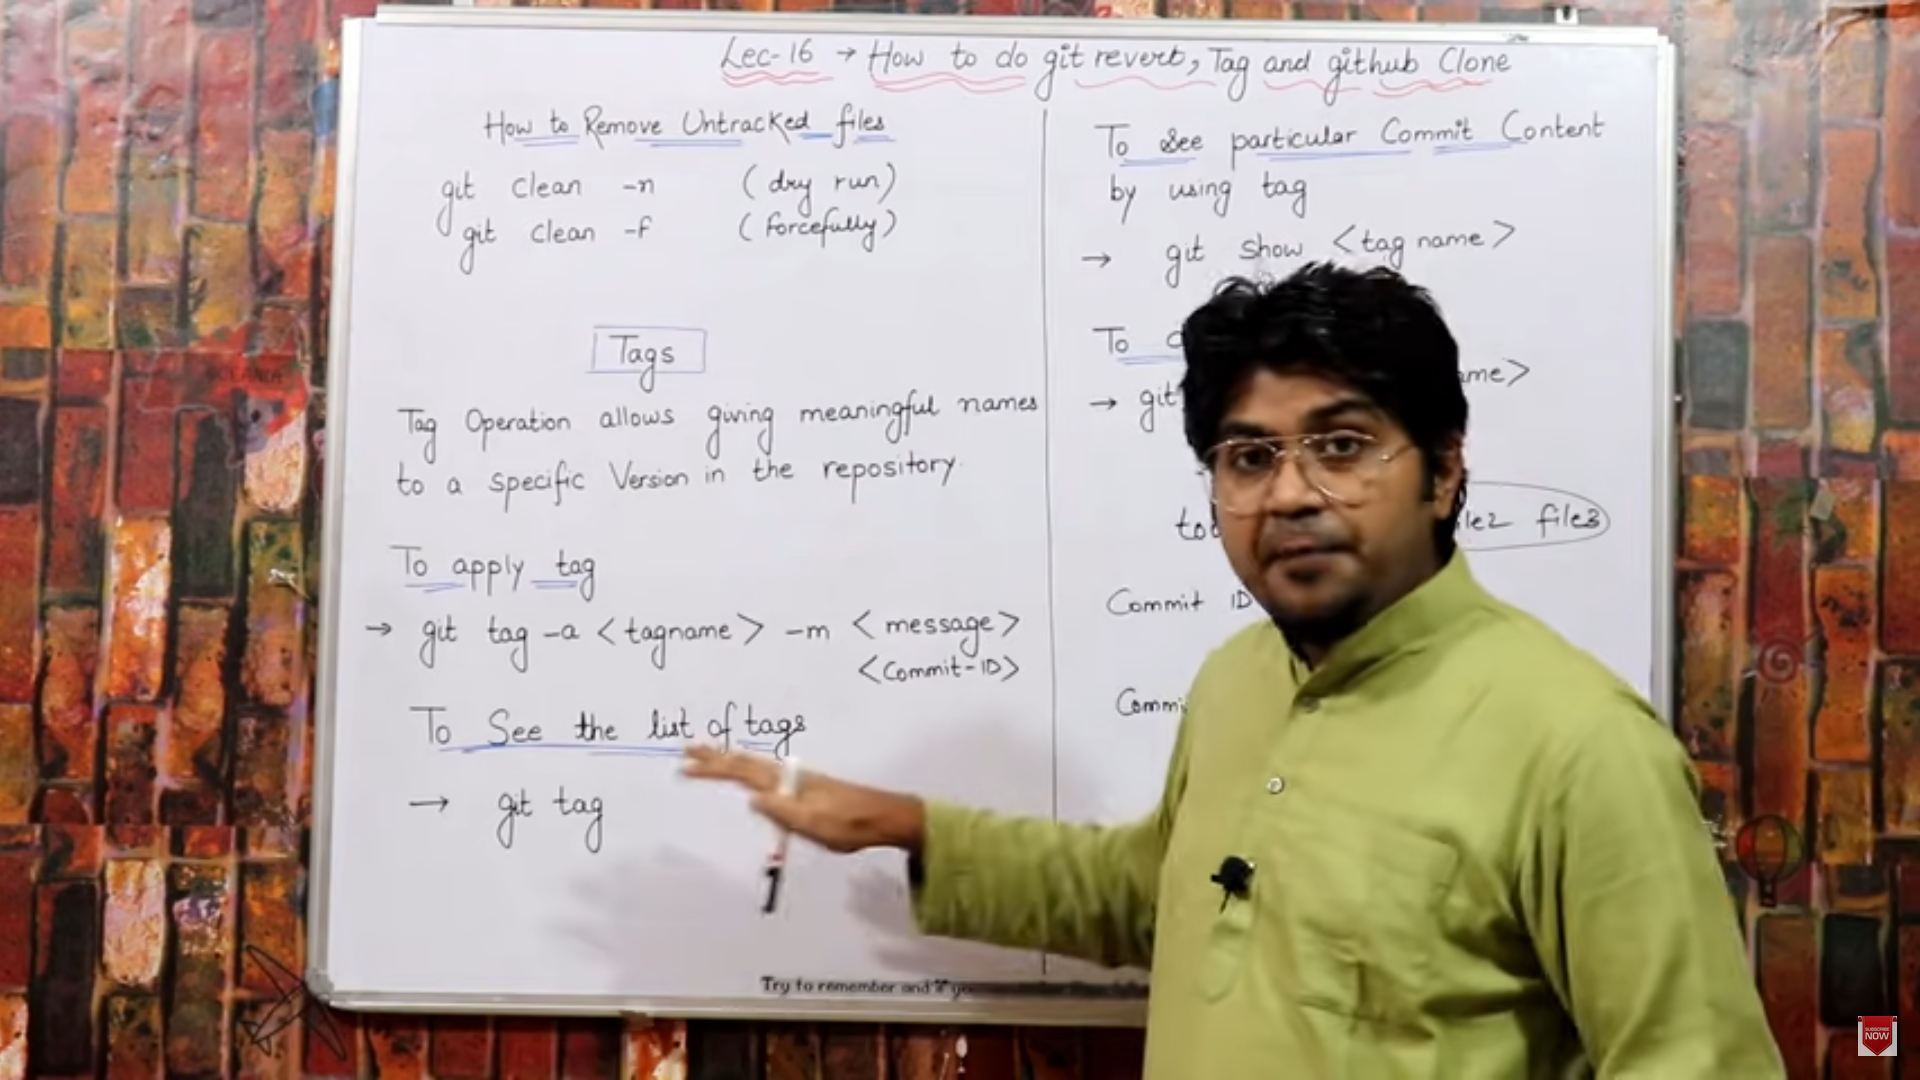 Lec-16 → How to do git revert, Tag and github Clone
How to Remove Untracked files
git clean -n (dry run)
git clean -f (forcefully)
Tags
Tag Operation allows giving meaningful names
to a specific Version in the repository.
To apply tag
→ git tag -a <tagname> -m <message>
<Commit-ID>
To See the list of tags
→ git tag
To See particular Commit Content
by using tag
→ git show <tag name>
To
→ git
file3
Commit ID
Try to remember and if
SUBSCRIBE
NOW